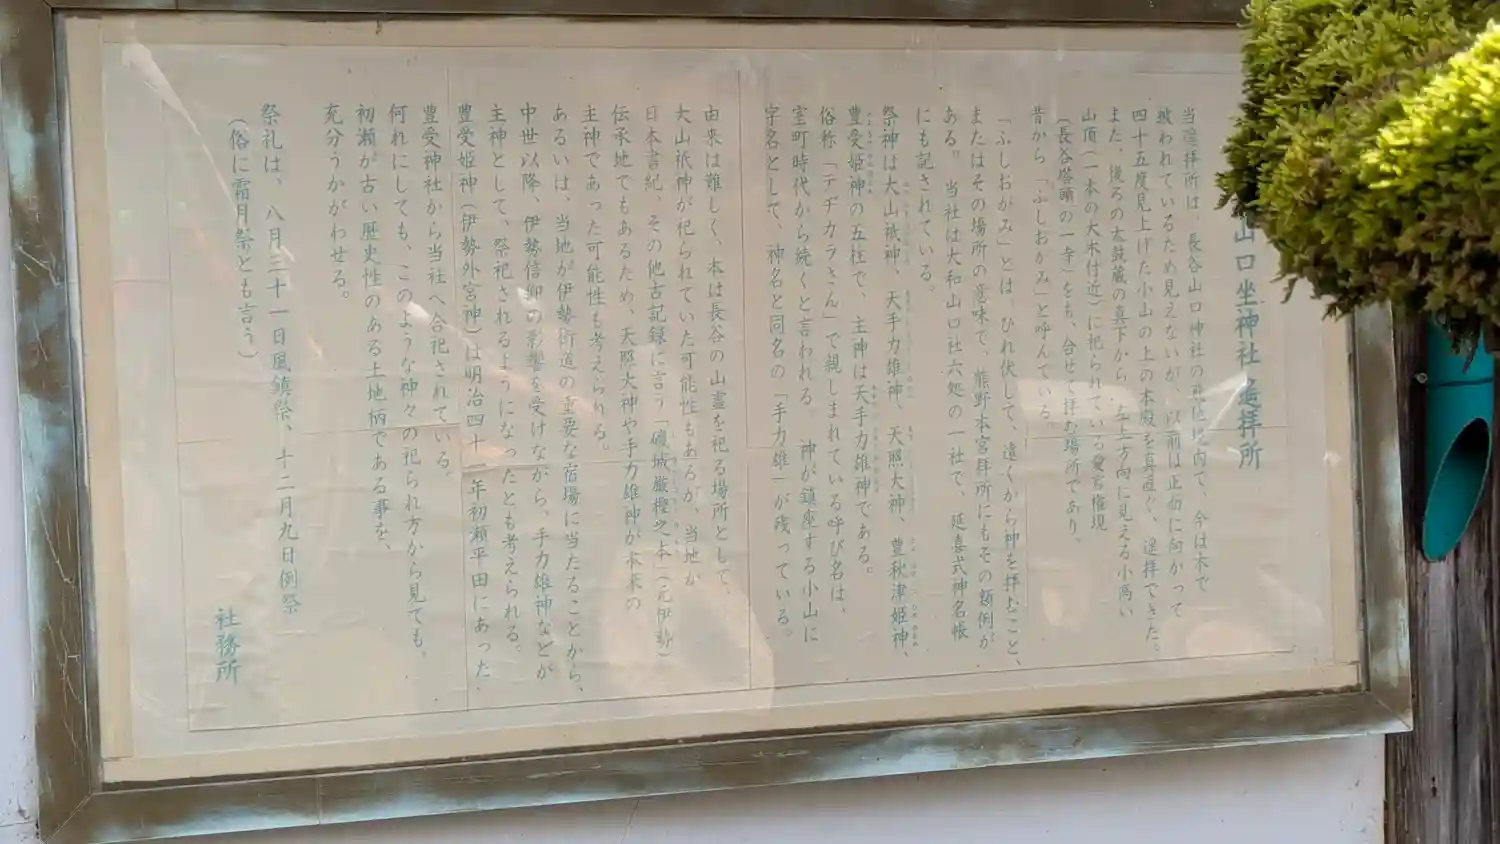 山口坐神社遙拝所
当遥拝所は、長谷山口神社の飛地境内で、今は木で
被われているため見えないが、以前は正面に向かって
四十五度見上げた小山の上の本殿を真直ぐ、遥拝できた。
また、後ろの太鼓蔵の真下から、左上方向に見える小高い
山頂(一本の大木付近)に祀られている愛宕権現
(長谷塔頭の一寺)をも、合せて拝む場所であり、
昔から「ふしおがみ」と呼んでいる。
「ふしおがみ」とは、ひれ伏して、遠くから神を拝むこと、
またはその場所の意味で、熊野本宮拝所にもその類例が
ある。当社は大和山口社六処の一社で、延喜式神名帳
にも記されている。
祭神は大山祇神、天手力雄神、天照大神、豊秋津姫神、
豊受姫神の五柱で、主神は天手力雄神である。
俗称「テヂカラさん」で親しまれている呼び名は、
室町時代から続くと言われる 神が鎮座する小山に
字名として、神名と同名の「手力雄」が残っている。
由来は難しく、本は長谷の山霊を祀る場所として、
大山祇神が祀られていた可能性もあるが、当地が
日本書紀、その他古記録に言う「磯城厳橿之本」(元伊勢)
伝承地でもあるため、天照大神や手力雄神が本来の
主神であった可能性も考えられる。
あるいは、当地が伊勢街道の重要な宿場に当たることから、
中世以降、伊勢信仰の影響を受けながら、手力雄神などが
主神として、祭祀されるようになったとも考えられる。
豊受姫神(伊勢外宮神)は明治四十一年初瀬平田にあった
豊受神社から当社へ合祀されている。
何れにしても、このような神々の祀られ方から見ても、
初瀬が古い歴史性のある土地柄である事を、
充分うかがわせる。
祭礼は、八月三十一日風鎮祭、十二月九日例祭
(俗に霜月祭とも言う)
社務所